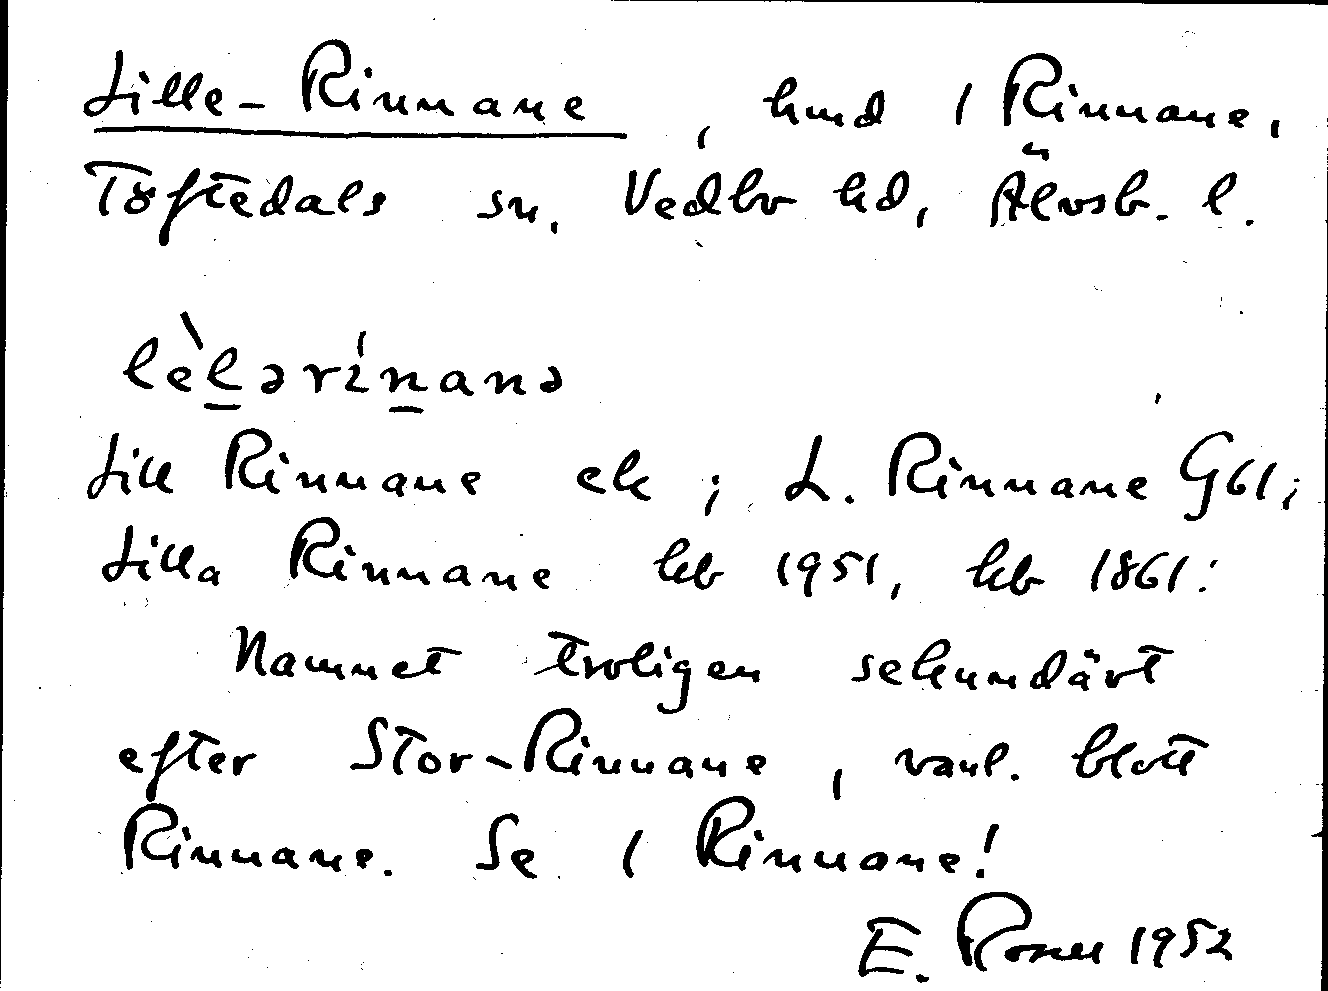 Lille-Rinnane, hmd 1 Rinnane,
Töftedals sn, Vedbo hd, Älvsb. l.
lèl̠ərín̠anə
Lill Rinnane ek; L. Rinnane G61;
Lilla Rinnane kb 1951, kb 1861:
Namnet troligen sekundärt
efter Stor-Rinnane, vanl. blott
Rinnane. Se 1 Rinnane!
E. 1952